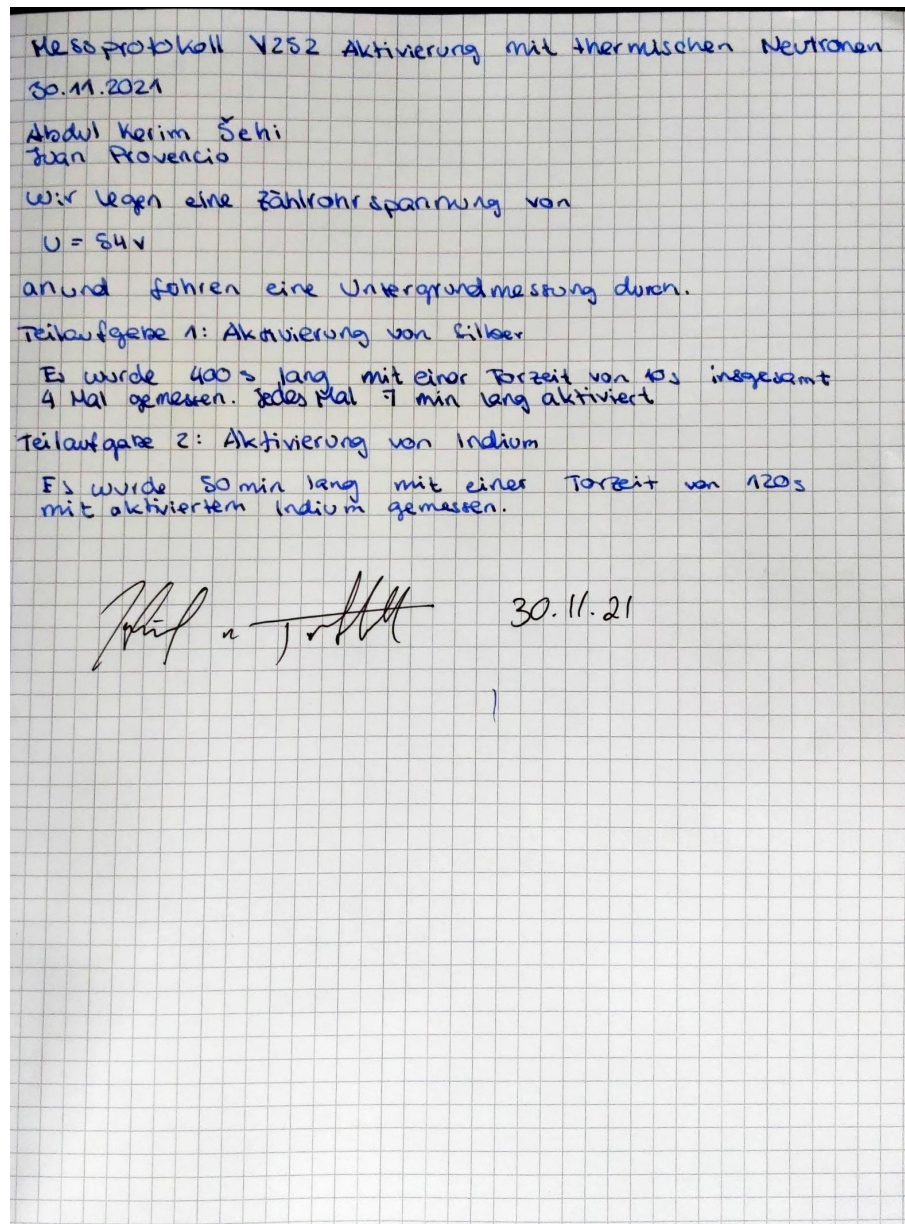 Messprotokoll V252 Aktivierung mit thermischen Neutronen
30.11.2021
Abdul Kerim Šehi
Juan Provencio
Wir legen eine Zählrohrspannung von
U = 54 V
an und führen eine Untergrundmessung durch.
Teilaufgabe 1: Aktivierung von Silber
Es wurde 400 s lang mit einer Torzeit von 10s insgesamt
4 Mal gemessen. Jedes Mal 7 min lang aktiviert
Teilaufgabe 2: Aktivierung von Indium
Es wurde 50 min lang mit einer Torzeit von 120s
mit aktiviertem Indium gemessen.
30.11.21